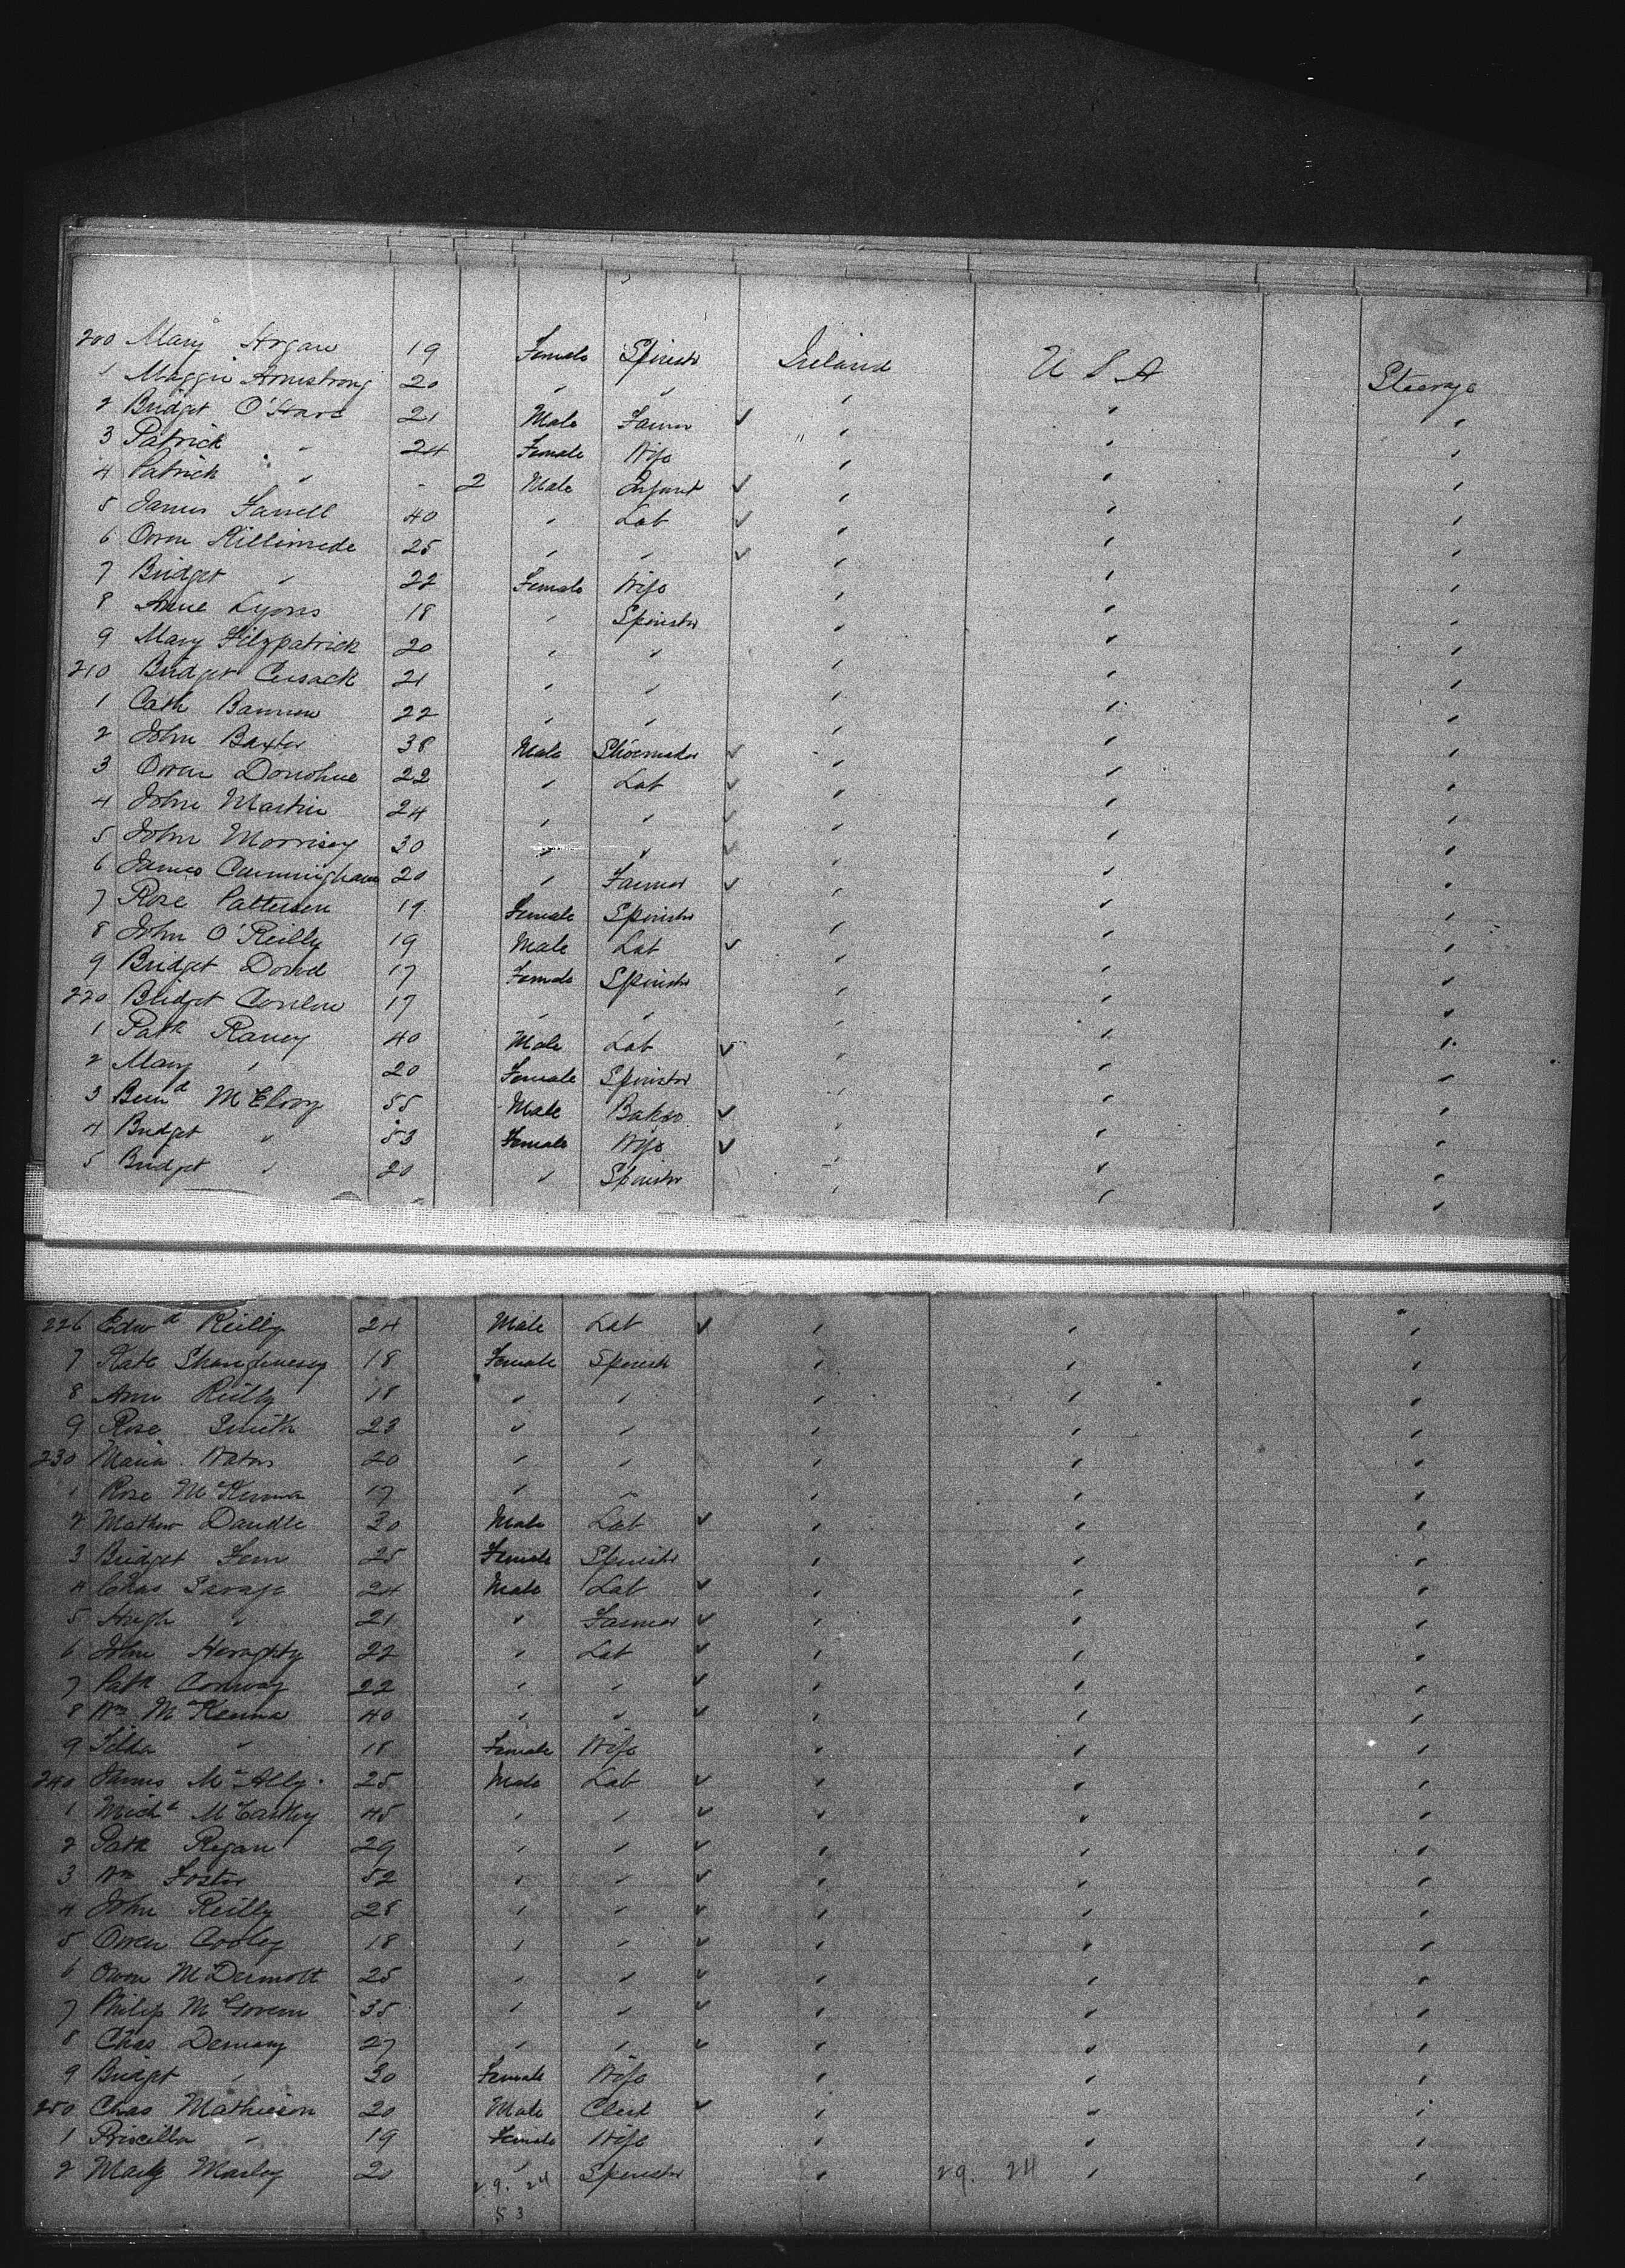 200 Mary Hogan 19 Female Spinster Ireland U S A Steerage
1 Maggie Armstrong 20 " " " " "
2 Bridget O'Hare 21 Male Farmer ✓ " " "
3 Patrick " 24 Female Wife " " "
4 Patrick " - 2 Male Infant ✓ " " "
5 James Farrell 40 " Lab ✓ " " "
6 Owen 25 " " ✓ " " "
7 Bridget " 22 Female Wife " " "
8 Anne Lyons 18 " Spinster " " "
9 Mary Fitzpatrick 20 " " " " "
210 Bridget Cusack 21 " " " " "
1 Cath Bannon 22 " " " " "
2 John Baxter 38 Male Shoemaker ✓ " " "
3 Owen Donohue 22 " Lab ✓ " " "
4 John Martin 24 " " ✓ " " "
5 John Morrisey 30 " " ✓ " " "
6 James Cunningham 20 " Farmer ✓ " " "
7 Rose Patterson 19 Female Spinster " " "
8 John O'Reilly 19 Male Lab ✓ " " "
9 Bridget Dowd 17 Female Spinster " " "
220 Bridget Conlon 17 " " " " "
1 Patk Raney 40 Male Lab ✓ " " "
2 Mary " 20 Female Spinster " " "
3 Bernd McElroy 55 Male Baker ✓ " " "
4 Bridget " 53 Female Wife ✓ " " "
5 Bridget " 20 " Spinster " " "
226 Edwd Reilly 24 Male Lab ✓ " " "
7 Kate Shaughnessy 18 Female Spinster " " "
8 Ann Reilly 18 " " " " "
9 Rose Smith 23 " " " " "
230 Maria Waters 20 " " " " "
1 Rose McKenna 17 " " " " "
2 Mathew Daudle 30 Male Lab ✓ " " "
3 Bridget 25 Female Spinster " " "
4 Chas Savage 24 Male Lab ✓ " " "
5 Hugh " 21 " Farmer ✓ " " "
6 John Heraghty 22 " Lab ✓ " " "
7 Patk Conway 22 " " ✓ " " "
8 Wm McKenna 40 " " ✓ " " "
9 " 18 Female Wife " " "
240 James McAlly 25 Male Lab ✓ " " "
1 Michl McCarthy 45 " " ✓ " " "
2 Patk Regan 29 " " ✓ " " "
3 Wm Foster 52 " " ✓ " " "
4 John Reilly 28 " " ✓ " " "
5 Owen Cooley 18 " " ✓ " " "
6 Owen McDermott 25 " " ✓ " " "
7 Philip McGovern 35 " " ✓ " " "
8 Chas Demany 27 " " ✓ " " "
9 Bridget " 30 Female Wife " " "
250 Chas Mathieson 20 Male Clerk ✓ " " "
1 Priscilla " 19 Female Wife " " "
2 Mary Marley 20 " Spinster " " "
29. 24 29. 24
53